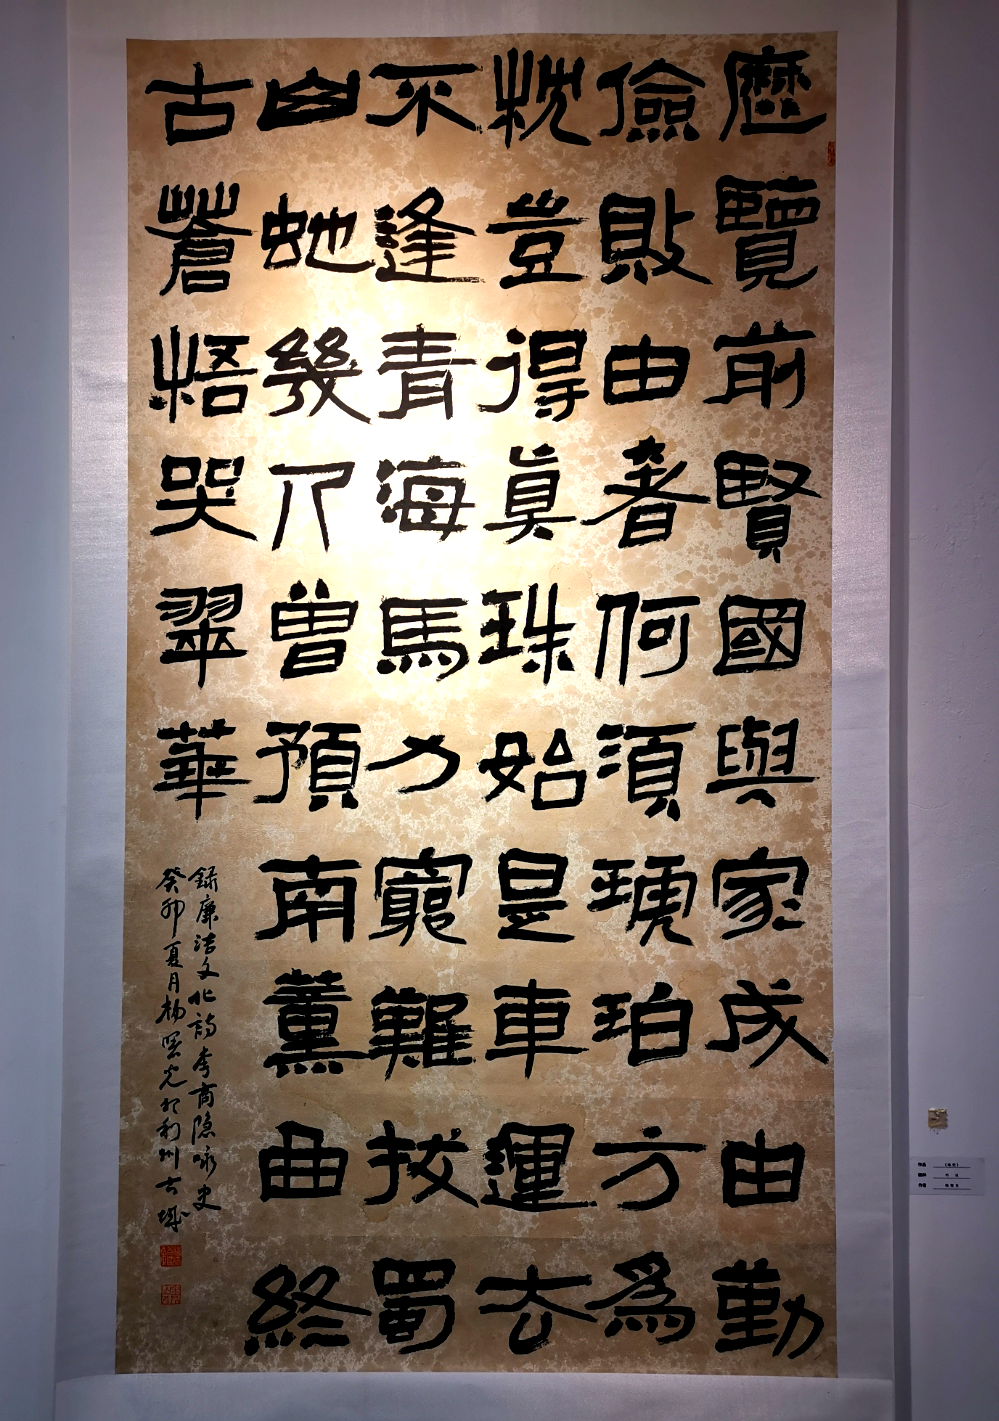 歷覽前賢國與家成由勤
儉敗由奢何須琥珀方爲
枕豈得眞珠始是車運去
不逢青海馬力窮難拔蜀
山虵幾人曾預南薰曲終
古蒼梧哭翠華
録廉洁文化詩李商隐咏史
癸卯夏月杨光於利州古城